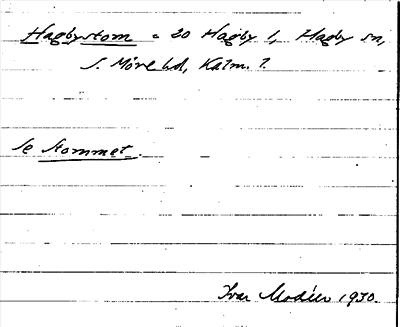 Hagbystom = 20 Hagby 1, Hagby sn,
S. Möre hd, Kalm. l.
Se Stommet.
Ivar Modéer 1930.